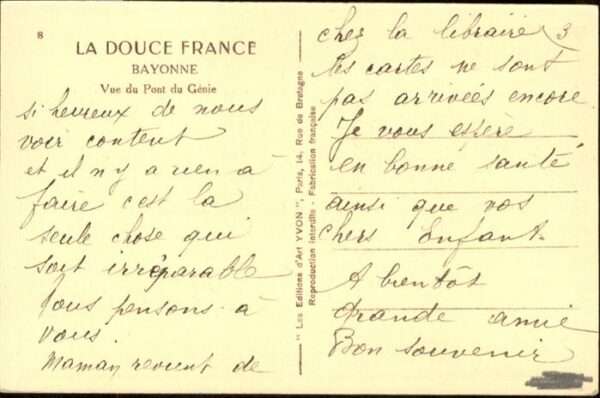 8
LA DOUCE FRANCE
BAYONNE
Vue du Pont du Génie
si heureux de nous
voir content
et il n y a rien à
faire c'est la
seule chose qui
soit irréparable
Nous pensons à
vous.
Maman revient de
" Les Editions d'Art YVON ", Paris, 14, Rue de Bretagne
Reproduction interdite - Fabrication française
chez la libraire 3
les cartes ne sont
pas arrivées encore
Je vous espère
en bonne santé
ainsi que vos
chers Enfant.
A bientôt
grande amie
Bon souvenir